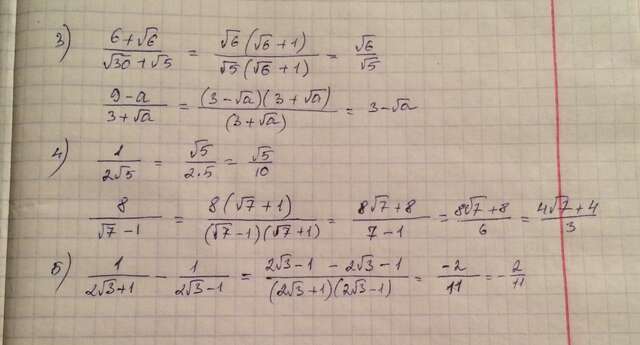 3) (6+√6)/(√30+√5) = √6(√6+1)/√5(√6+1) = √6/√5
(9-a)/(3+√a) = (3-√a)(3+√a)/(3+√a) = 3-√a
4) 1/(2√5) = √5/(2·5) = √5/10
8/(√7-1) = 8(√7+1)/(√7-1)(√7+1) = (8√7+8)/(7-1) = (8√7+8)/6 = (4√7+4)/3
5) 1/(2√3+1) - 1/(2√3-1) = (2√3-1 -2√3-1)/(2√3+1)(2√3-1) = -2/11 = -2/11